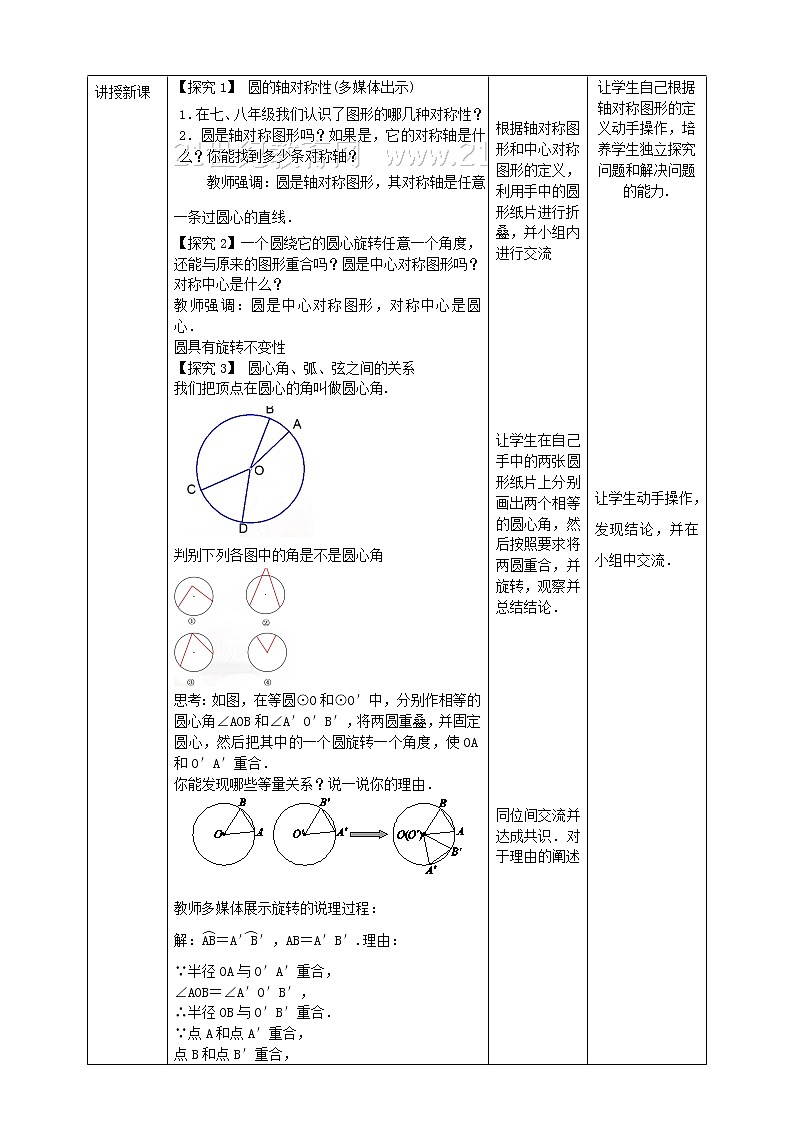 讲授新课
【探究1】 圆的轴对称性(多媒体出示)
1.在七、八年级我们认识了图形的哪几种对称性？
2.圆是轴对称图形吗？如果是，它的对称轴是什
么？你能找到多少条对称轴？
教师强调：圆是轴对称图形，其对称轴是任意
一条过圆心的直线．
【探究2】一个圆绕它的圆心旋转任意一个角度，
还能与原来的图形重合吗？圆是中心对称图形吗？
对称中心是什么？
教师强调：圆是中心对称图形，对称中心是圆
心．
圆具有旋转不变性
【探究3】 圆心角、弧、弦之间的关系
我们把顶点在圆心的角叫做圆心角．
B
A
O
C
D
判别下列各图中的角是不是圆心角
① ②
③ ④
思考：如图，在等圆⊙O和⊙O′中，分别作相等的
圆心角∠AOB和∠A′O′B′,将两圆重叠，并固定
圆心，然后把其中的一个圆旋转一个角度，使OA
和O′A′重合．
你能发现哪些等量关系？说一说你的理由．
B B′ B
O A O′ A′ O(O′) A
B′
A′
教师多媒体展示旋转的说理过程：
解：AB＝A′B′，AB＝A′B′.理由：
∵半径OA与O′A′重合，
∠AOB＝∠A′O′B′，
∴半径OB与O′B′重合．
∵点A和点A′重合，
点B和点B′重合，
根据轴对称图
形和中心对称
图形的定义，
利用手中的圆
形纸片进行折
叠，并小组内
进行交流
让学生在自己
手中的两张圆
形纸片上分别
画出两个相等
的圆心角，然
后按照要求将
两圆重合，并
旋转，观察并
总结结论．
同位间交流并
达成共识．对
于理由的阐述
让学生自己根据
轴对称图形的定
义动手操作，培
养学生独立探究
问题和解决问题
的能力．
让学生动手操作，
发现结论，并在
小组中交流．
21世纪教育网 www.21